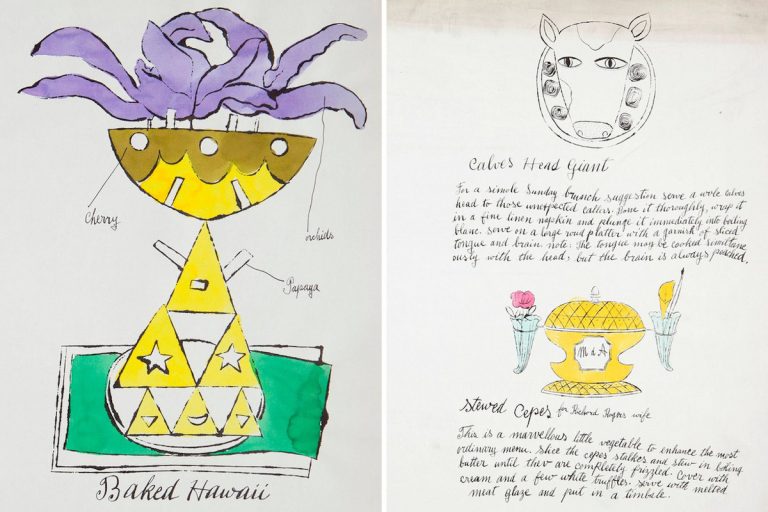 Cherry
orchids
Papaya
Baked Hawaii
Calves Head Giant
For a simole Sunday brunch suggestion serve a whole calves
head to those unexpected callers. Bone it thoroughly, wrap it
in a fine linen napkin and plunge it immediately into boiling
blanc. serve on a large roud platter with a garnish of sliced
tongue and brain. note: The tongue may be cooked simultane
ously with the head, but the brain is always poached.
M d A
Stewed Cepes for Richard Rogers wife
This is a marvellous little vegetable to enhance the most
ordinary menu. Slice the cepes stalkes and stew in
butter until ther are completly frizzled. Cover with
cream and a few white truffles. Serve with melted
meat glaze and put in a timbale.